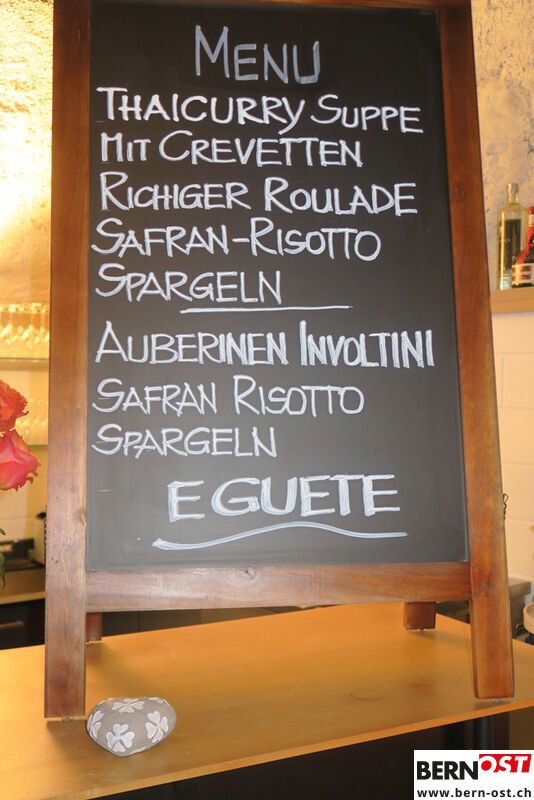 MENU
THAICURRY SUPPE
MIT CREVETTEN
RICHIGER ROULADE
SAFRAN-RISOTTO
SPARGELN
AUBERINEN INVOLTINI
SAFRAN RISOTTO
SPARGELN
E GUETE
BERNOST
www.bern-ost.ch